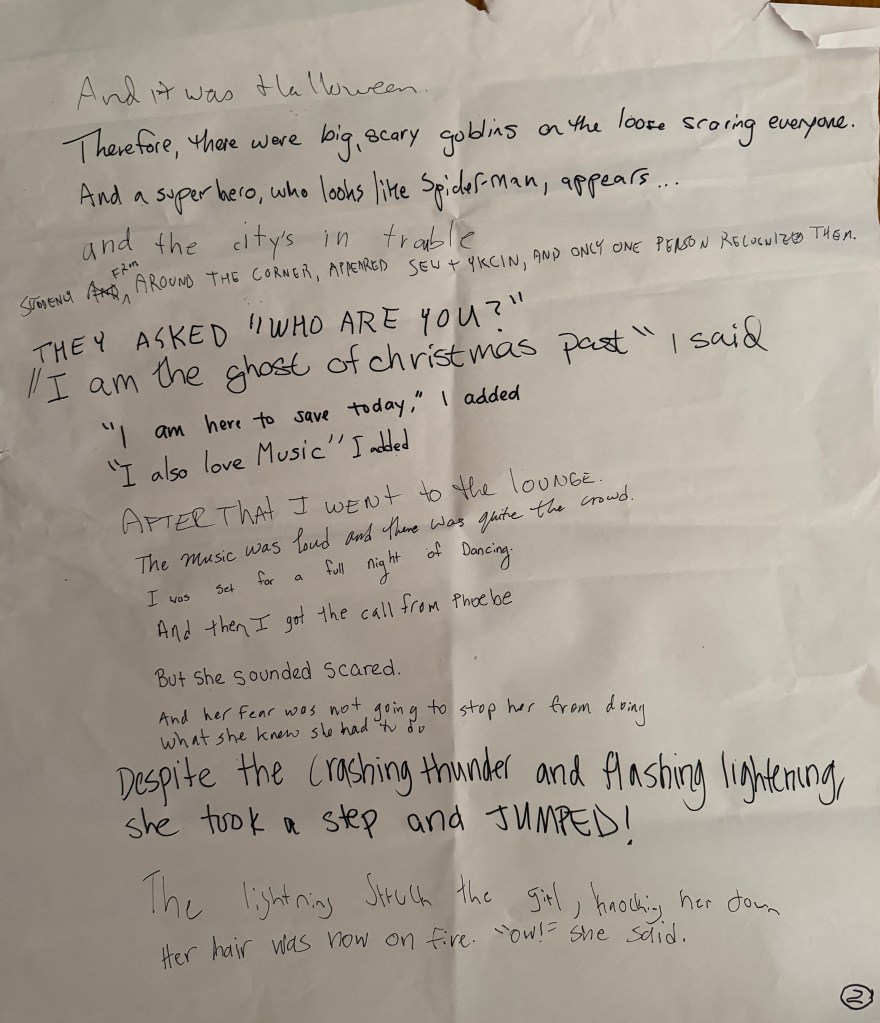 And it was Halloween.
Therefore, there were big, scary goblins on the loose scaring everyone.
And a superhero, who looks like Spider-man, appears...
and the city's in trouble
AROUND THE CORNER, APPEARED SEW + YKCIN, AND ONLY ONE PERSON RECOGNIZED THEM.
THEY ASKED "WHO ARE YOU?"
"I am the ghost of christmas past" I said
"I am here to save today," I added
"I also love Music" I added
AFTER THAT I WENT to the LOUNGE.
The Music was loud and there was quite the crowd.
I was set for a full night of Dancing.
And then I got the call from Phoebe
But she sounded scared.
And her fear was not going to stop her from doing
what she knew she had to do
Despite the crashing thunder and flashing lightening,
she took a step and JUMPED!
The lightning struck the girl, knocking her down
Her hair was now on fire. "ow!" she said.
2